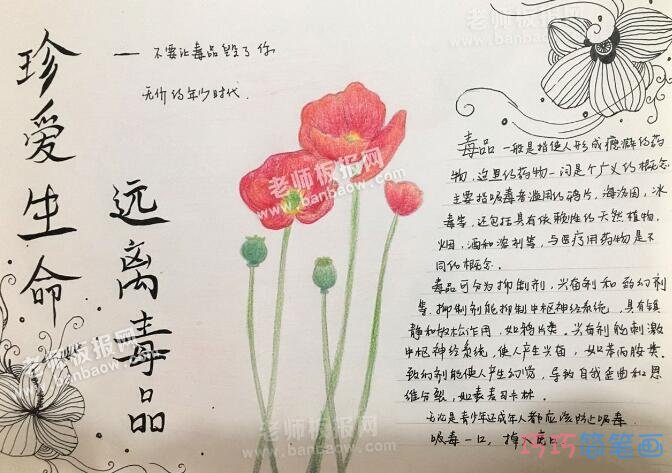 珍爱生命
远离毒品
—— 不要让毒品毁了你
无价的年少时代.
毒品一般是指使人形成瘾癖的药
物，这里的药物一词是个广义的概念
主要指吸毒者滥用的鸦片，海洛因，冰
毒等，还包括具有依赖性的天然植物，
烟，酒和溶剂等，与医疗用药物是不
同的概念。
毒品可分为抑制剂，兴奋剂和致幻剂
等.抑制剂能抑制中枢神经系统，具有镇
静和放松作用，如鸦片类.兴奋剂能刺激
中枢神经系统，使人产生兴奋，如苯丙胺类.
致幻剂能使人产生幻觉，导致自我歪曲和思
维分裂，如麦麦司卡林.
无论是青少年还成年人都应该防止吸毒
吸毒一口，掉
老师板报网
www.banbaow.com
老师板报网
www.banbaow.com
老师板报网
www.banbaow.com
老师板报网
www.banbaow.com
老师板报网
www.banbaow.com
老师板报网
www.banbaow.com
巧巧简笔画